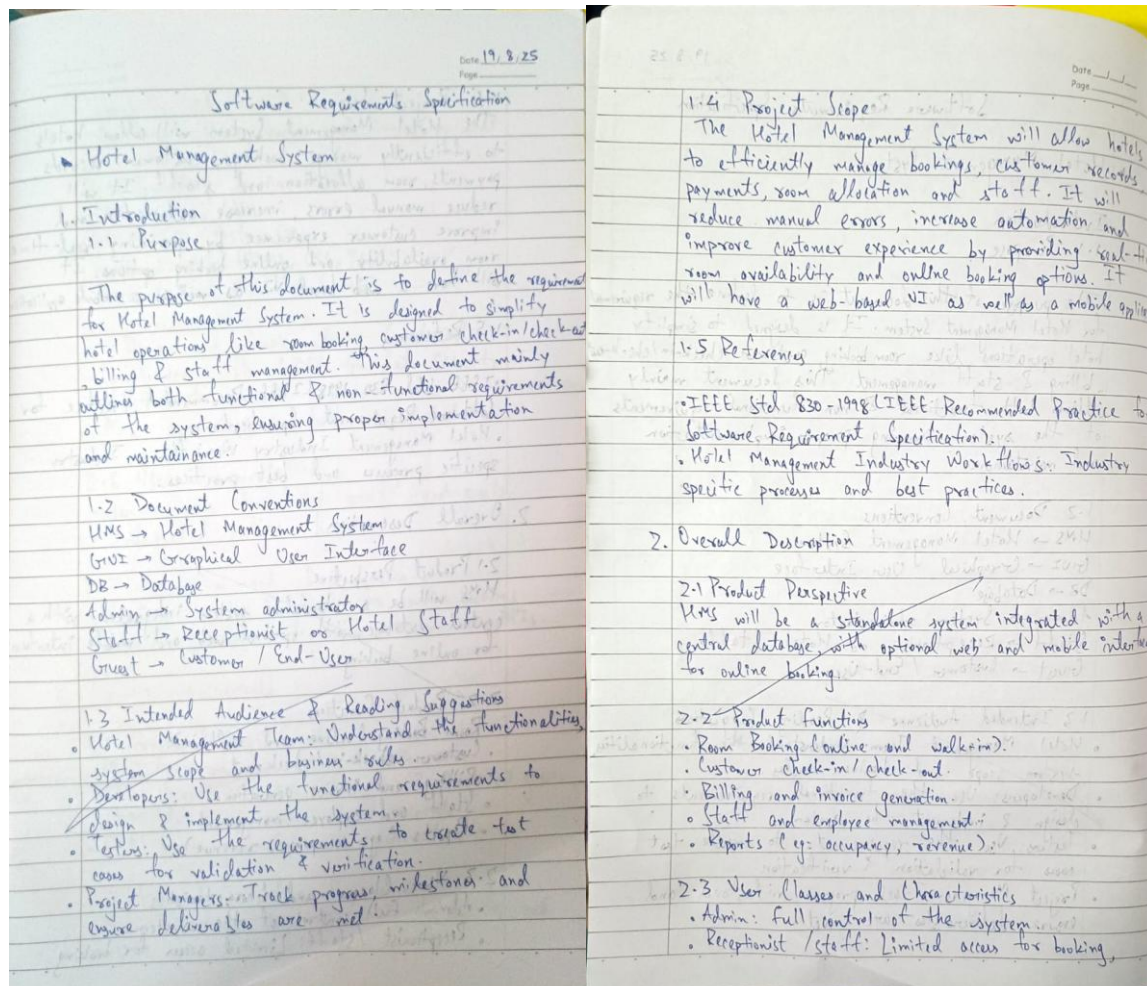 Date 19/8/25
Page
Software Requirements Specification
Hotel Management System
1. Introduction
1.1 Purpose
The purpose of this document is to define the requirement
for Hotel Management System. It is designed to simplify
hotel operations like room booking, customer check-in/check-out
, billing & staff management. This document mainly
outlines both functional & non-functional requirements
of the system, ensuring proper implementation
and maintainance.
1.2 Document Conventions
HMS → Hotel Management System
GUI → Graphical User Interface
DB → Database
Admin → System administrator
Staff → Receptionist or Hotel Staff
Guest → Customer / End-User
1.3 Intended Audience & Reading Suggestions
• Hotel Management Team: Understand the functionalities,
system scope and business rules.
• Developers: Use the functional requirements to
design & implement the system.
• Testers: Use the requirements to create test
cases for validation & verification.
• Project Managers: Track progress, milestones and
ensure deliverables are met.
Date
Page
1.4 Project Scope
The Hotel Management System will allow hotels
to efficiently manage bookings, customer records
payments, room allocation and staff. It will
reduce manual errors, increase automation and
improve customer experience by providing real-ti
room availability and online booking options. It
will have a web-based UI as well as a mobile applic
1.5 References
• IEEE Std 830-1998 (IEEE Recommended Practice fo
Software Requirement Specification).
• Hotel Management Industry Workflows: Industry
specific processes and best practices.
2. Overall Description
2.1 Product Perspective
HMS will be a standalone system integrated with a
central database, with optional web and mobile interfa
for online booking.
2.2 Product functions
• Room Booking (online and walk-in).
• Customer check-in / check-out.
• Billing and invoice generation.
• Staff and employee management.
• Reports (eg: occupancy, revenue).
2.3 User Classes and Characteristics
• Admin: full control of the system.
• Receptionist / staff: Limited access for booking,